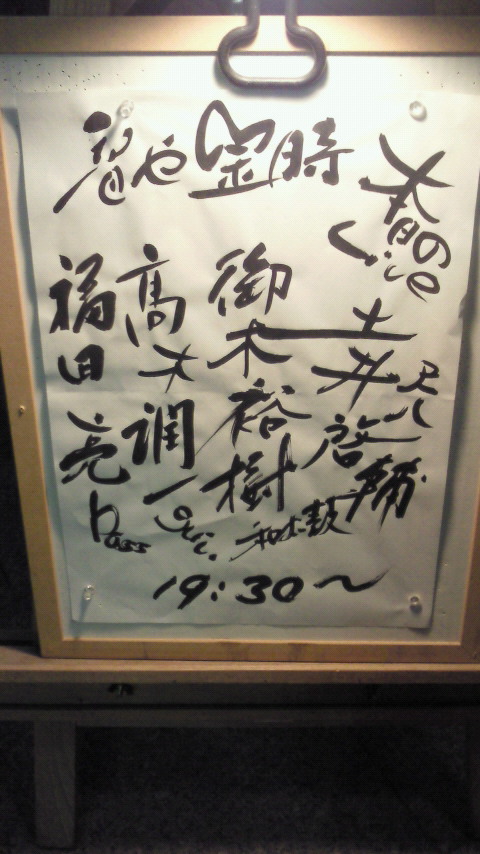 音や金時
春の
土井啓輔
尺八
御木裕樹
和太鼓
高木潤一
福田亮
Bass
19:30〜